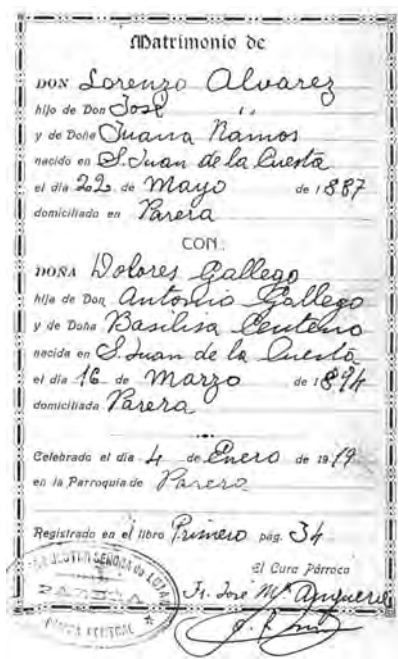 Matrimonio de
DON Lorenzo Alvarez
hijo de Don José
y de Doña Juana Ramos
nacido en S. Juan de la Cuesta
el día 22 de Mayo de 1887
domiciliado en Parera
CON:
DOÑA Dolores Gallego
hija de Don Antonio Gallego
y de Doña Basilisa Centeno
nacida en S. Juan de la Cuesta
el día 16 de Marzo de 1894
domiciliada Parera
Celebrado el día 4 de Enero de 1919
en la Parroquia de Parera
Registrado en el libro Primero pág. 34
El Cura Párroco
Fr. José Mª
NUESTRA SEÑORA de LUJAN
PARERA
PAMPA CENTRAL